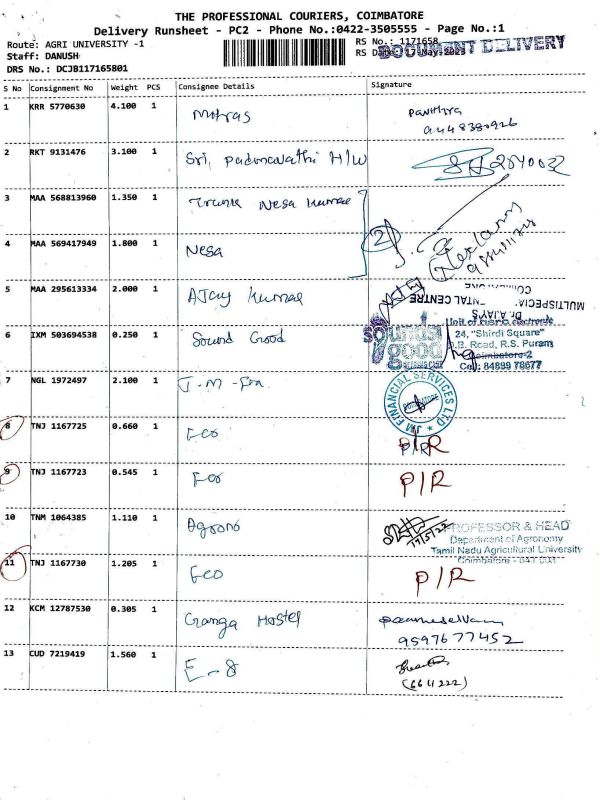 THE PROFESSIONAL COURIERS, COIMBATORE
Delivery Runsheet - PC2 - Phone No.:0422-3505555 - Page No.:1
Route: AGRI UNIVERSITY -1
RS No.: 1171658
DOCUMENT DELIVERY
Staff: DANUSH
RS Date: 17 May
DRS No.: DCJB117165801
S No Consignment No Weight PCS Consignee Details Signature
1 KRR 5770630 4.100 1 Pavithra
2 RKT 9131476 3.100 1 Sri. Padmavathi H/W
3 MAA 568813960 1.350 1 Nesa Kumar
4 MAA 569417949 1.800 1 Nesa
5 MAA 295613334 2.000 1 AJay Kumar
MULTISPECIA
NTAL CENTRE
Dr AJAY'S
6 IXM 503694538 0.250 1 Sound Good
sounds good
24, "Shirdi Square"
D.B. Road, R.S. Puram
Coimbatore-2
Cell: 84899 78677
7 NGL 1972497 2.100 1 J.M-Fin
JM FINANCIAL SERVICES LTD
COIMBATORE
8 TNJ 1167725 0.660 1 Eco P/R
9 TNJ 1167723 0.545 1 P/R
10 TNM 1064385 1.110 1 Agrono
PROFESSOR & HEAD
Department of Agronomy
Tamil Nadu Agricultural University
Coimbatore - 641 003
11 TNJ 1167730 1.205 1 Eco P/R
12 KCM 12787530 0.305 1 Ganga Hostel
9597677452
13 CUD 7219419 1.560 1 E-8
(664222)